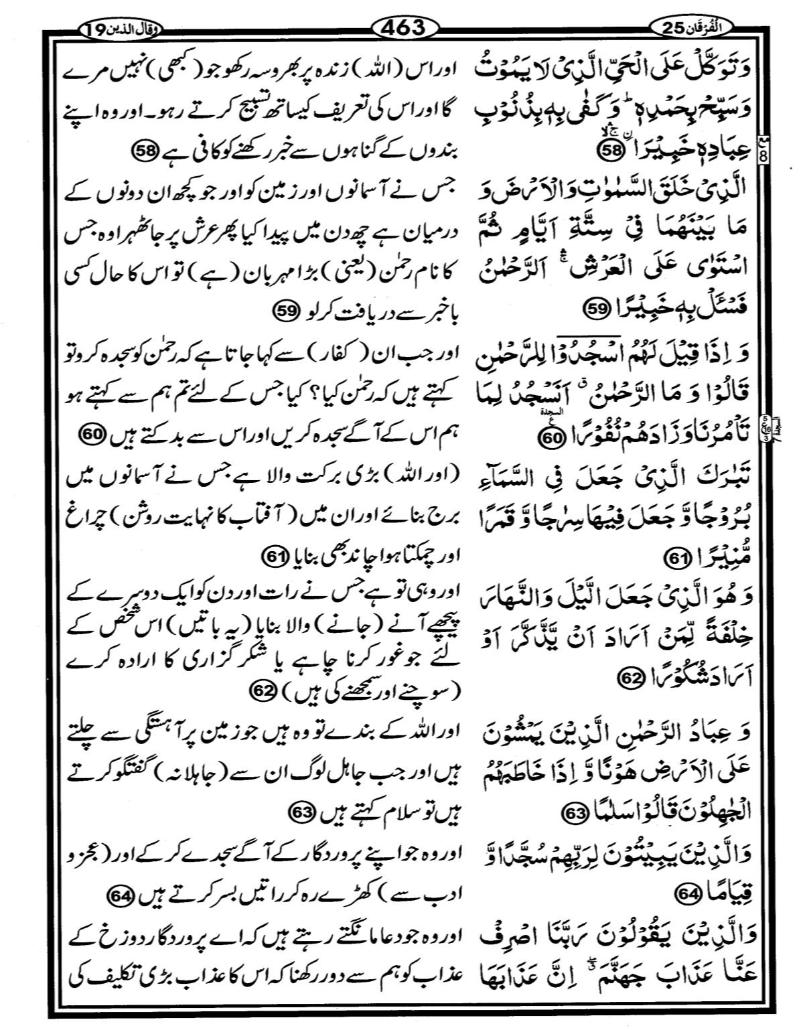 الفرقان 25
463
وقال الذین 19
وَتَوَكَّلْ عَلَى الْحَيِّ الَّذِىْ لَا يَمُوْتُ
وَسَبِّحْ بِحَمْدِهٖ ؕ وَكَفٰى بِهٖ بِذُنُوْبِ
عِبَادِهٖ خَبِيْرًا 58
الَّذِىْ خَلَقَ السَّمٰوٰتِ وَالْاَرْضَ وَ
مَا بَيْنَهُمَا فِىْ سِتَّةِ اَيَّامٍ ثُمَّ
اسْتَوٰى عَلَى الْعَرْشِ ۛۚ اَلرَّحْمٰنُ
فَسْئَلْ بِهٖ خَبِيْرًا 59
وَ اِذَا قِيْلَ لَهُمُ اسْجُدُوْا لِلرَّحْمٰنِ
قَالُوْا وَ مَا الرَّحْمٰنُ ۗ اَنَسْجُدُ لِمَا
تَاْمُرُنَا وَزَادَهُمْ نُفُوْرًا 60
تَبٰرَكَ الَّذِىْ جَعَلَ فِى السَّمَآءِ
بُرُوْجًا وَّ جَعَلَ فِيْهَا سِرٰجًا وَّ قَمَرًا
مُّنِيْرًا 61
وَ هُوَ الَّذِىْ جَعَلَ الَّيْلَ وَالنَّهَارَ
خِلْفَةً لِّمَنْ اَرَادَ اَنْ يَّذَّكَّرَ اَوْ
اَرَادَ شُكُوْرًا 62
وَ عِبَادُ الرَّحْمٰنِ الَّذِيْنَ يَمْشُوْنَ
عَلَى الْاَرْضِ هَوْنًا وَّ اِذَا خَاطَبَهُمُ
الْجٰهِلُوْنَ قَالُوْا سَلٰمًا 63
وَالَّذِيْنَ يَبِيْتُوْنَ لِرَبِّهِمْ سُجَّدًا وَّ
قِيَامًا 64
وَالَّذِيْنَ يَقُوْلُوْنَ رَبَّنَا اصْرِفْ
عَنَّا عَذَابَ جَهَنَّمَ ۖ اِنَّ عَذَابَهَا
اور اس (اللہ) زندہ پر بھروسہ رکھو جو (کبھی) نہیں مرے
گا اور اس کی تعریف کیساتھ تسبیح کرتے رہو۔ اور وہ اپنے
بندوں کے گناہوں سے خبر رکھنے کو کافی ہے 58
جس نے آسمانوں اور زمین کو اور جو کچھ ان دونوں کے
درمیان ہے چھ دن میں پیدا کیا پھر عرش پر جا ٹھہرا وہ جس
کا نام رحمٰن (یعنی) بڑا مہربان (ہے) تو اس کا حال کسی
باخبر سے دریافت کر لو 59
اور جب ان (کفار) سے کہا جاتا ہے کہ رحمٰن کو سجدہ کرو تو
کہتے ہیں کہ رحمٰن کیا؟ کیا جس کے لئے تم ہم سے کہتے ہو
ہم اس کے آگے سجدہ کریں اور اس سے بدکتے ہیں 60
(اور اللہ) بڑی برکت والا ہے جس نے آسمانوں میں
برج بنائے اور ان میں (آفتاب کا نہایت روشن) چراغ
اور چمکتا ہوا چاند بھی بنایا 61
اور وہی تو ہے جس نے رات اور دن کو ایک دوسرے کے
پیچھے آنے (جانے) والا بنایا (یہ باتیں) اس شخص کے
لئے جو غور کرنا چاہے یا شکر گزاری کا ارادہ کرے
(سوچنے اور سمجھنے کی ہیں) 62
اور اللہ کے بندے تو وہ ہیں جو زمین پر آہستگی سے چلتے
ہیں اور جب جاہل لوگ ان سے (جاہلانہ) گفتگو کرتے
ہیں تو سلام کہتے ہیں 63
اور وہ جو اپنے پروردگار کے آگے سجدے کر کے اور (عجز و
ادب سے) کھڑے رہ کر راتیں بسر کرتے ہیں 64
اور وہ جو دعا مانگتے رہتے ہیں کہ اے پروردگار دوزخ کے
عذاب کو ہم سے دور رکھنا کہ اس کا عذاب بڑی تکلیف کی